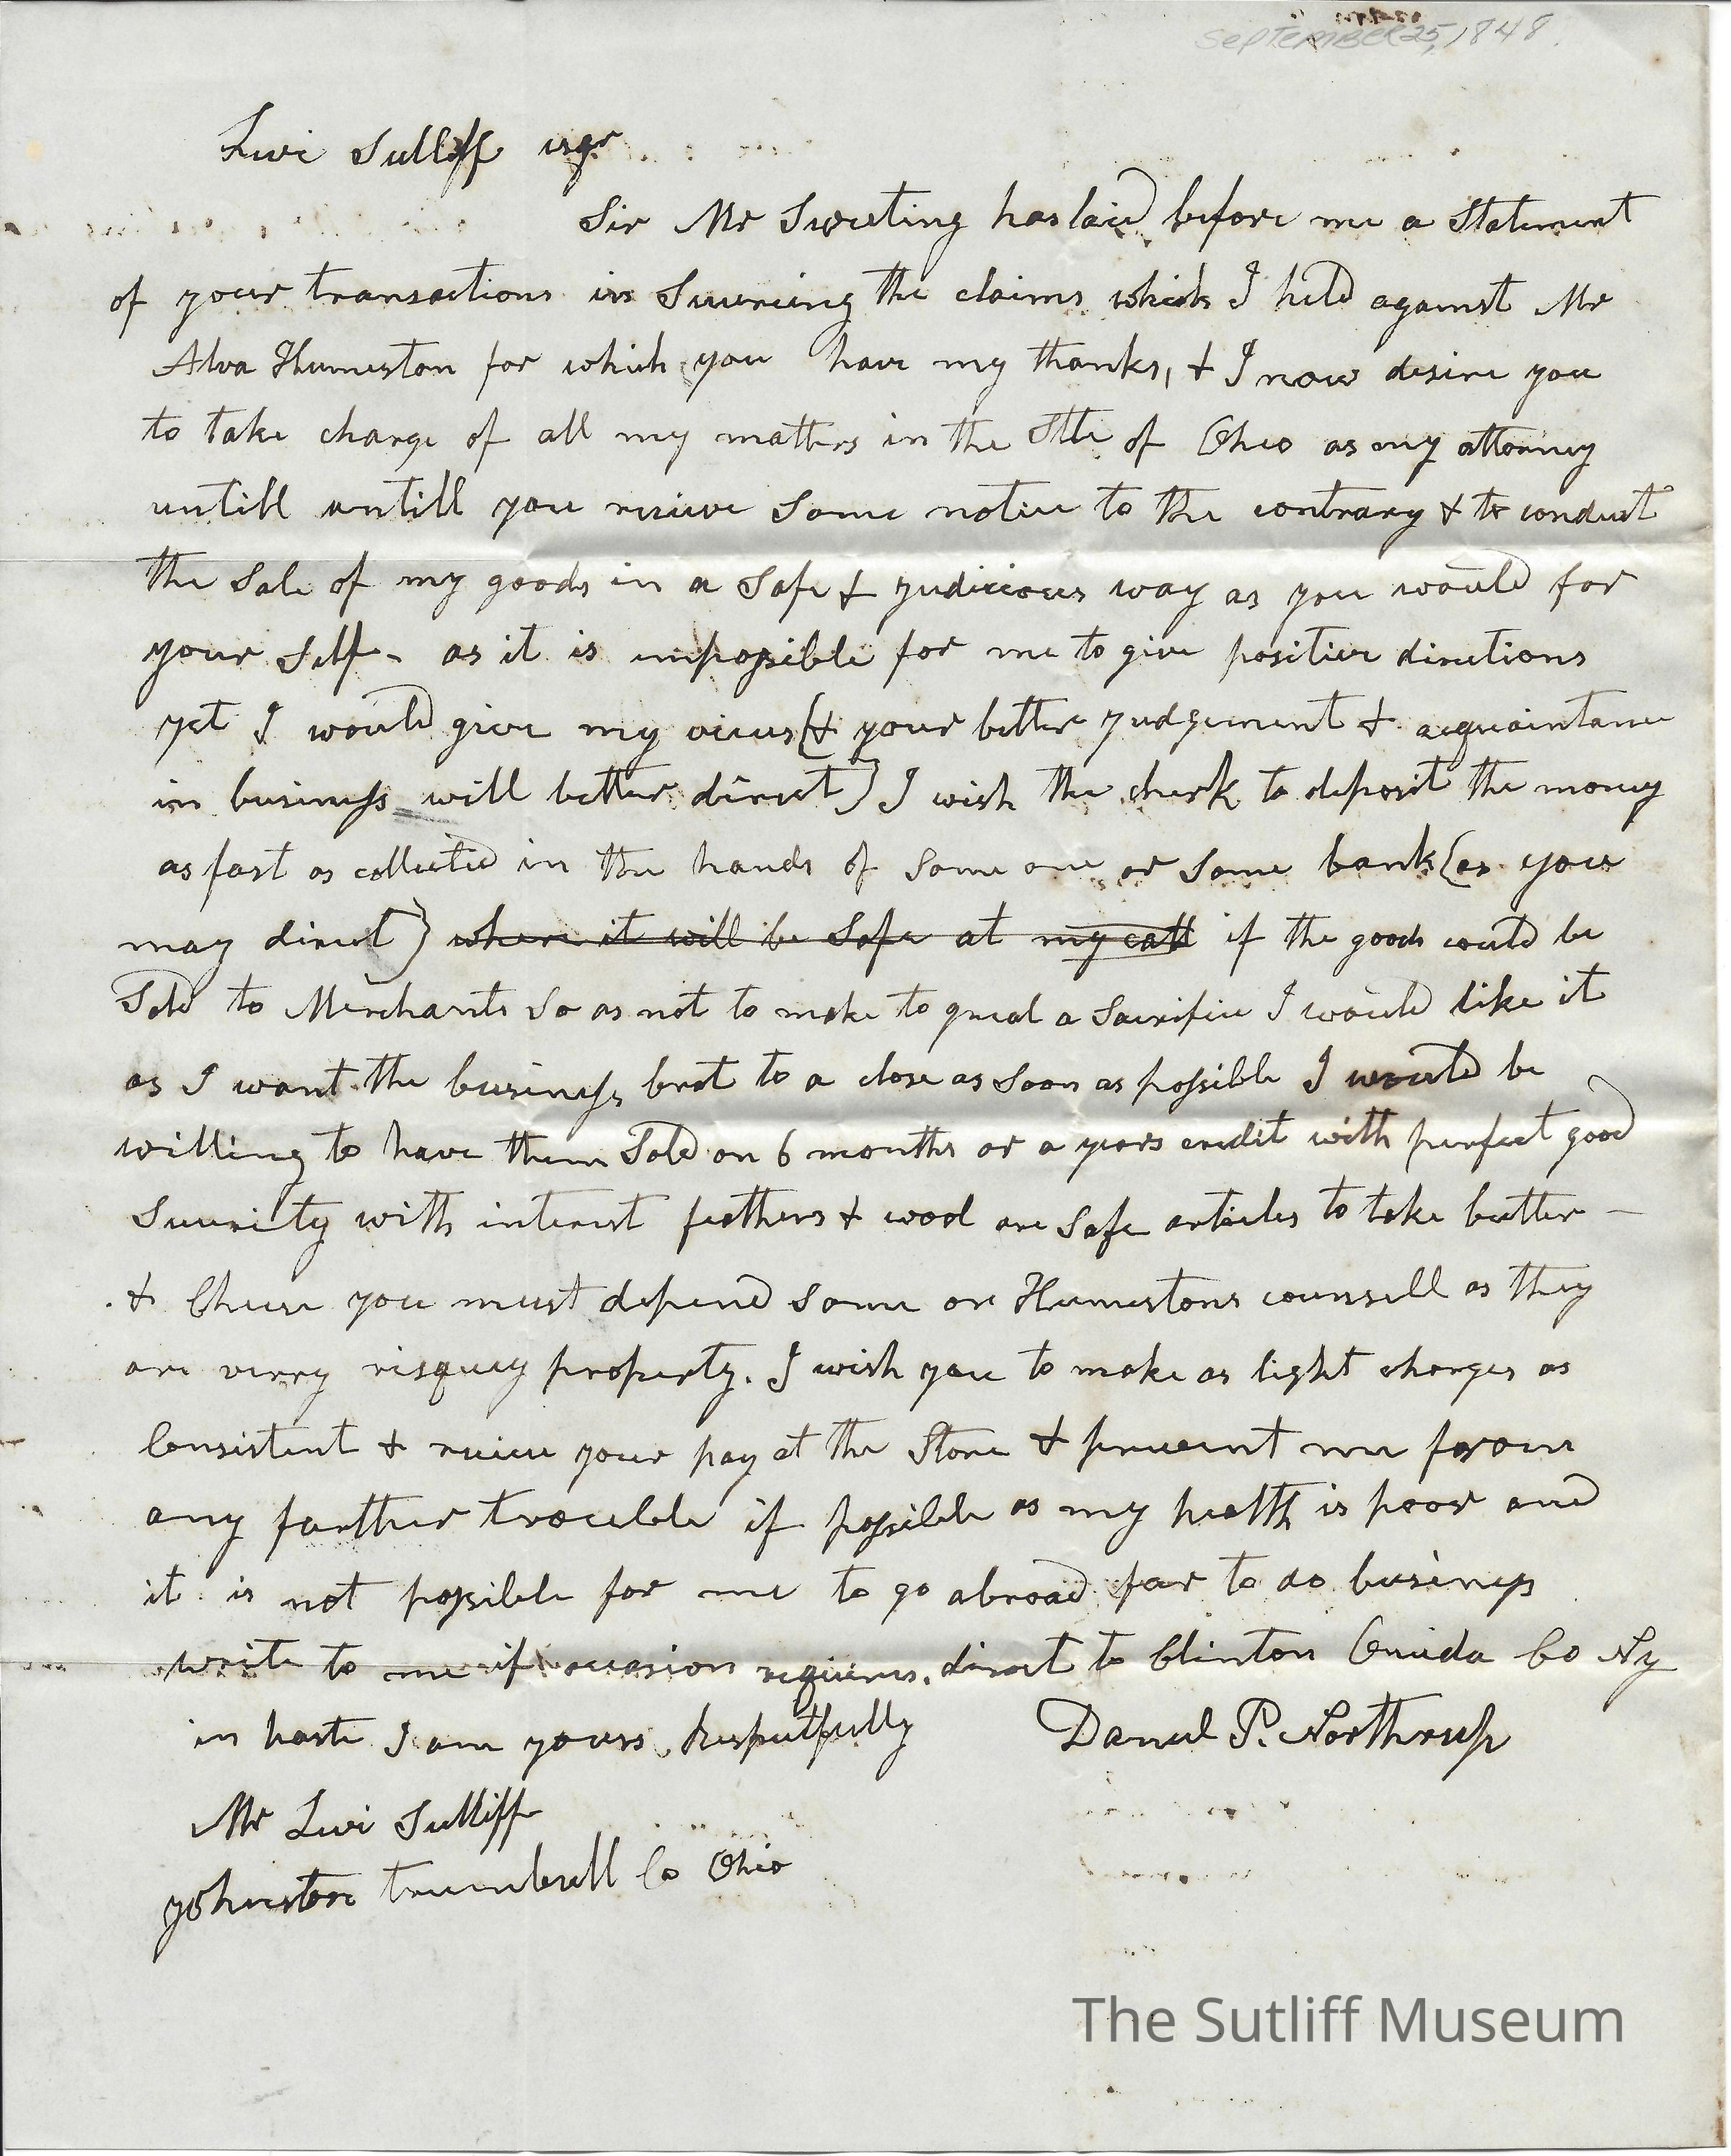 September 25, 1848.
Levi Sutliff esqr
Sir Mr Sweeting has laid before me a Statement
of your transactions in Securing the claims which I held against Mr
Alva Humeston for which you have my thanks, & I now desire you
to take charge of all my matters in the Stte of Ohio as my attorney
untill untill you recieve Some notice to the contrary & to conduct
the Sale of my goods in a Safe & judicious way as you would for
your Self - as it is impossible for me to give positive directions
yet I would give my views (& your better judgement & acquaintance
in business will better direct) I wish the clerk to deposit the money
as fast as collected in the hands of Some one or Some bank (as you
may direct) where it will be Safe at my call if the goods could be
Sold to Merchants So as not to make to great a Sacrifice I would like it
as I want the business brot to a close as Soon as possible I would be
willing to have them Sold on 6 months or a years credit with perfect good
Security with interest feathers & wool are Safe articles to take butter -
& Cheese you must depend Some on Humestons counsell as they
are verry risquey property. I wish you to make as light charges as
Consistent & recieve your pay at the Store & prevent me from
any farther trouble if possible as my health is poor and
it is not possible for me to go abroad far to do business
write to me if occasion requires. direct to Clinton Oneida Co Ny
in haste I am yours Respectfully Daniel P. Northrup
Mr Levi Sutliff
Johnston trumbull Co Ohio
The Sutliff Museum